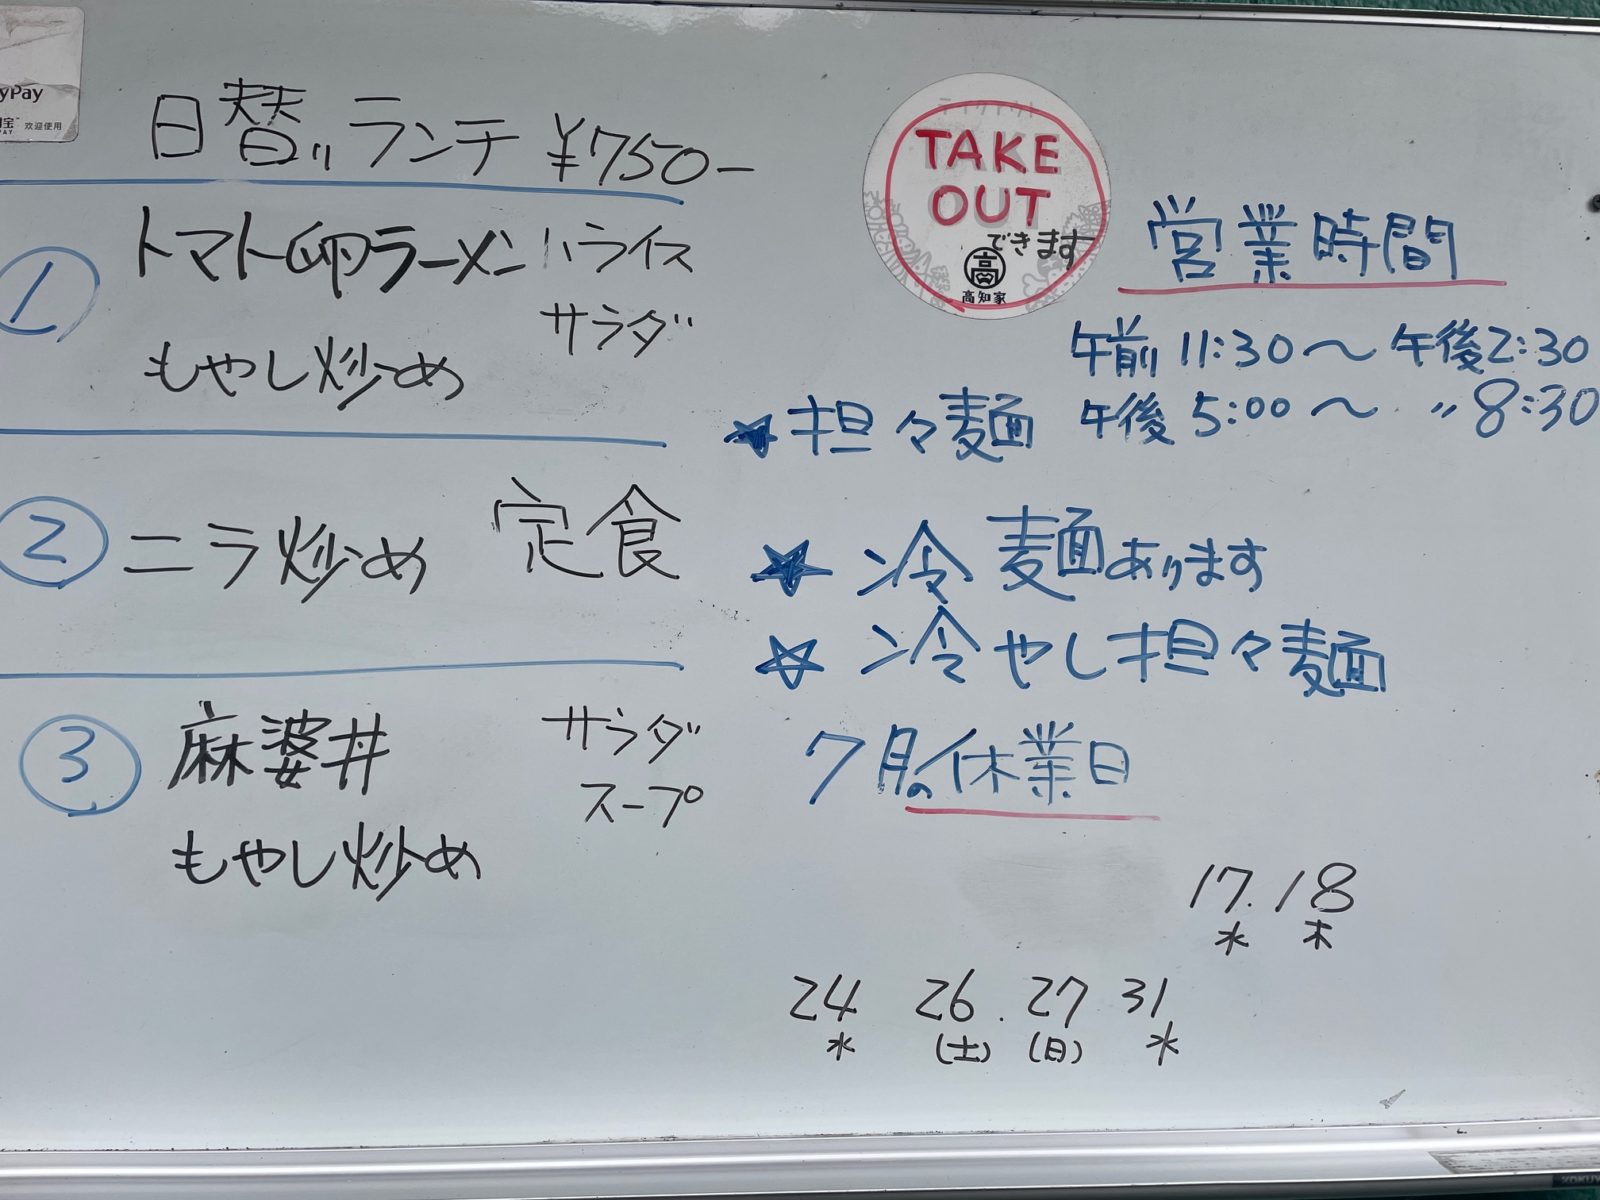 yPay
欢迎使用
日替りランチ ¥750-
① トマト卵ラーメン 小ライス
サラダ
もやし炒め
② ニラ炒め 定食
③ 麻婆丼 サラダ
スープ
もやし炒め
TAKE
OUT
できます
高
高知家
営業時間
午前11:30〜午後2:30
午後5:00〜〃8:30
★担々麺
★冷麺あります
☆冷やし担々麺
7月の休業日
17.18
水 木
24 26.27 31
水 (土) (日) 水